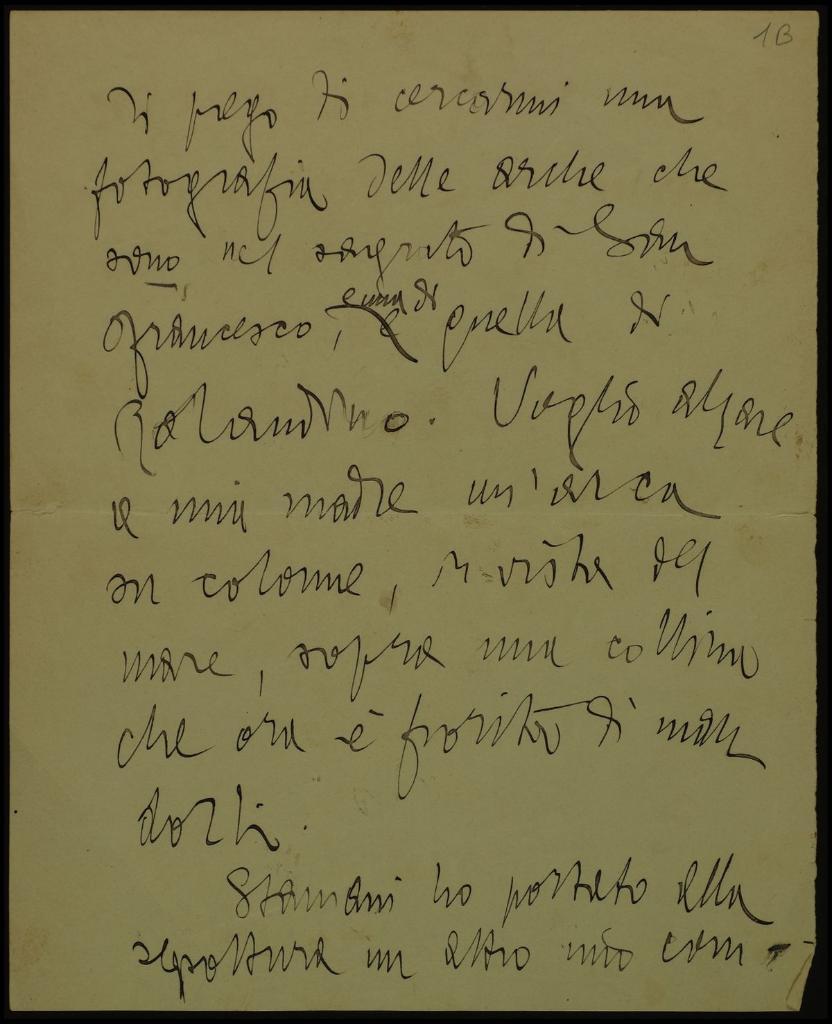 1B
Ti prego di cercarmi una
fotografia delle arche che
sono nel sagrato di San
Francesco, e una di quella di
Rolandino. Voglio alzare
a mia madre un'arca
su colonne, in vista del
mare, sopra una collina
che ora è fiorita di man
dorli.
Stamani ho portato alla
sepoltura un altro mio com-